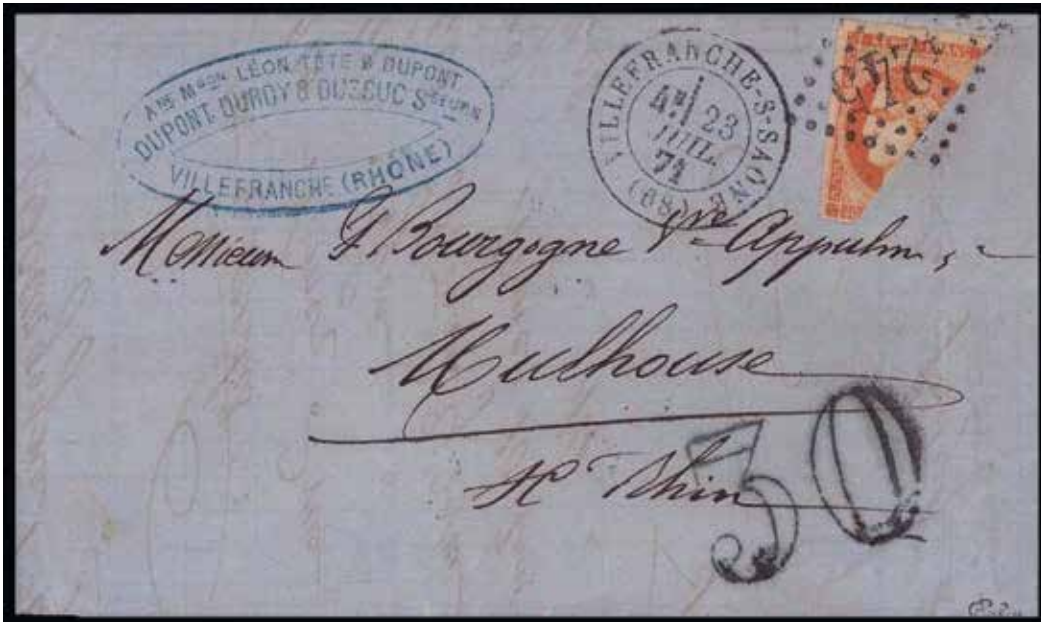 ANE MSON LÉON TÊTE & DUPONT
DUPONT DUROY & DUZDUC SEURS
VILLEFRANCHE (RHÔNE)
VILLEFRANCHE-S-SAÔNE
23
JUIL.
71
(68)
Monsieur F Bourgogne
Mulhouse
Ht Rhin
30